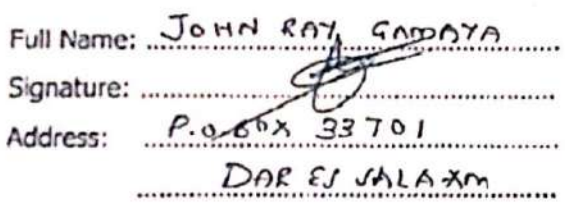 Full Name: JOHN RAY GAMAYA
Signature:
Address: P.O BOX 33701
DAR ES SALAAM